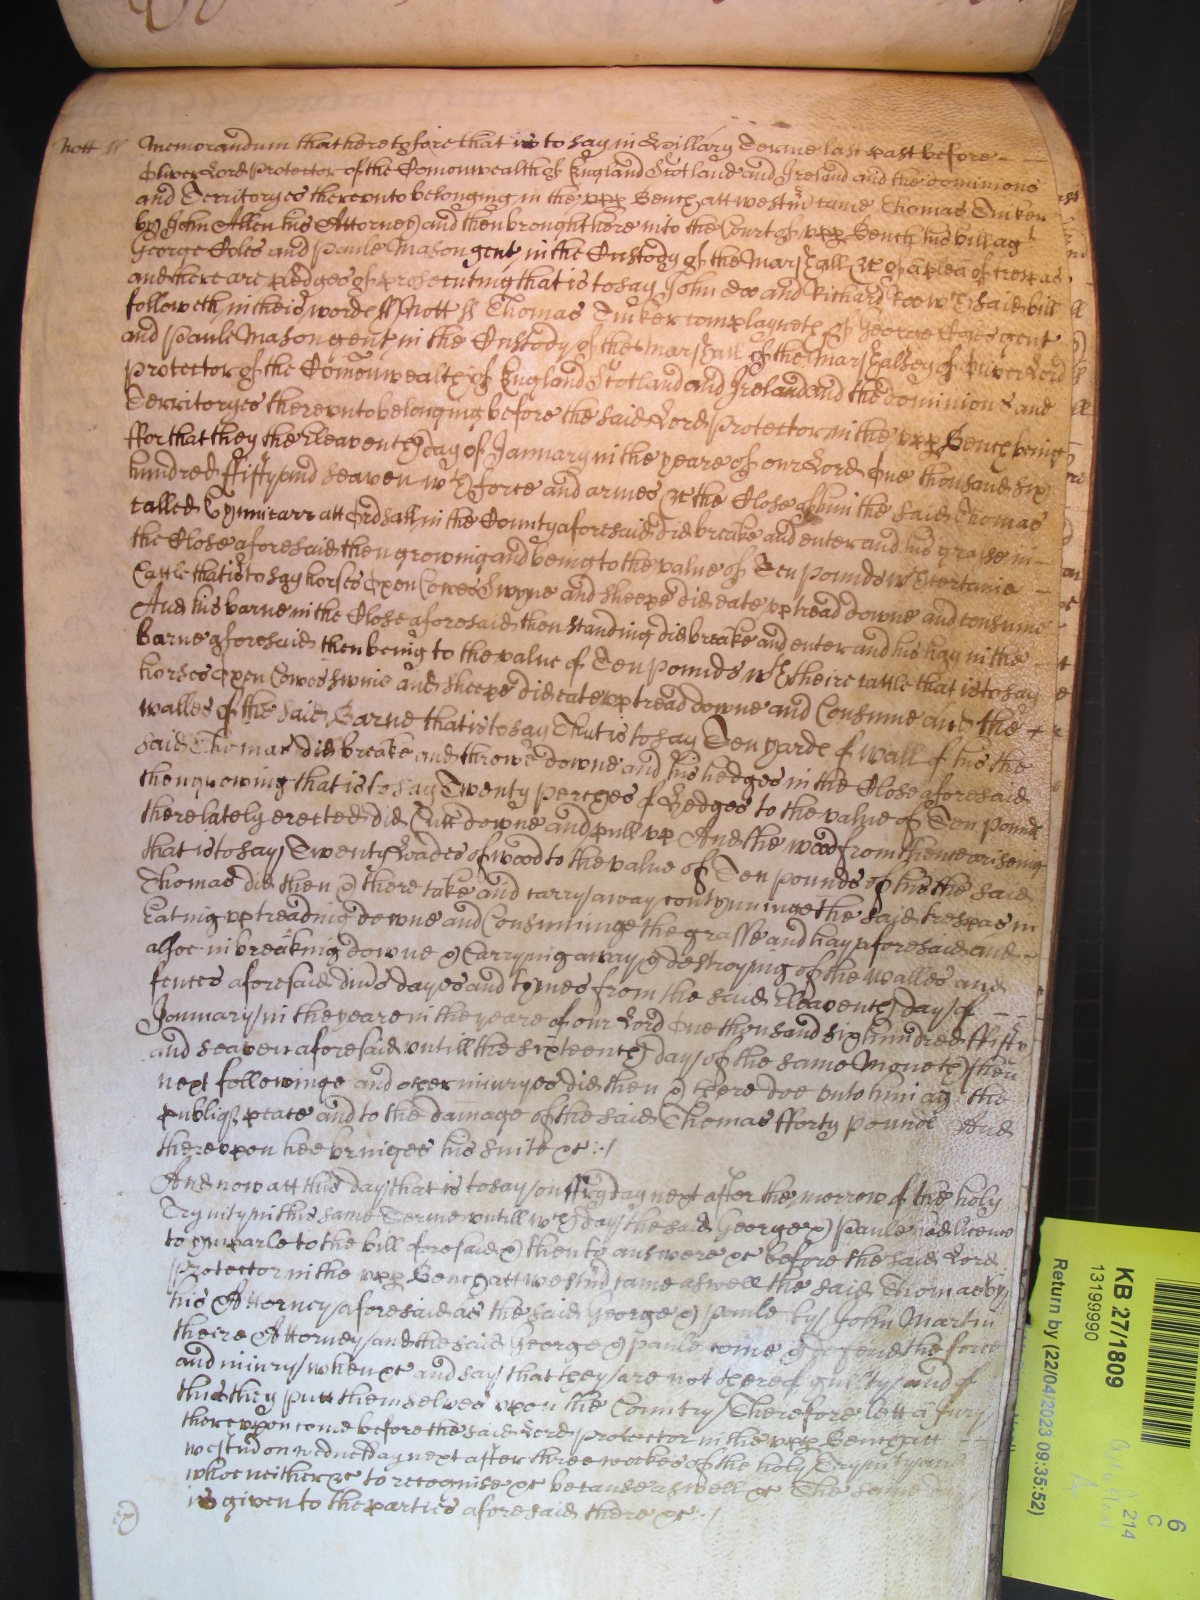 Nott ss Memorandum that heretofore that is to say in Hillary Terme last past before
Oliver Lord Protector of the Comonwealth of England Scotland and Ireland and the dominions
and Territoryes thereunto belonging in the upp Bench att westmr came Thomas Tuker
by John Allen his Attorney and then brought here into the Court of upp Bench his bill agt
George Coles and Paule Mason gent in the Custody of the Marshall &c of a plea of trespas
and there are pledges of prosecuting that is to say John Doe and Richard Roe wch said bill
followeth in theis wordes ss Nott ss Thomas Tuker complayneth of George Coles gent
and Paule Mason gent in the Custody of the Marshall of the Marshallsey of Oliver Lord
Protector of the Comonwealth of England Scotland and Ireland and the dominions and
Territoryes thereunto belonging before the said Lord Protector in the upp Bench being
ffor that they the Eleaventh day of January in the yeare of our Lord One thousand six
hundred ffifty and seaven wth force and armes &c the Close of him the said Thomas
called att Ordsall in the County aforesaid did breake and enter and his grasse in
the Close aforesaid then growing and being to the value of Ten pounds wth certaine
Cattle that is to say horses Oxen Cowes Swyne and sheepe did eate up tread downe and consume
And his barne in the Close aforesaid then standing did breake and enter and his hay in the
Barne aforesaid then being to the value of Ten pounds wth theire cattle that is to say
horses Oxen Cowes Swine and sheepe did eate up tread downe and Consume and the
walles of the said Barne that is to say That is to say Ten yarde of wall of his the
said Thomas did breake and throwe downe and his hedges in the Close aforesaid
then growing that is to say Twenty perches of Hedges to the value of Ten pounds
there lately erected did Cutt downe and pull up And the wood from thence ariseing
that is to say Twenty Loades of wood to the value of Ten pounds of his the said
Thomas did then & there take and carry away contynuinge the said trespas in
Eating up treading downe and Consuminge the grasse and hay aforesaid and
alsoe in breaking downe & Carrying away & destroying of the walles and
fences aforesaid divs dayes and tymes from the said Eleaventh day of
January in the yeare in the yeare of our Lord One thousand six hundred ffifty
and seaven aforesaid untill the sixteenth day of the same Moneth then
next followinge and other iniuryes did then & there doe unto him agt the
publiq peace and to the damage of the said Thomas fforty pounds And
thereupon hee bringes his suite &c :/
And now att this day that is to say on ffryday next after the morrow of the holy
Trynity in this same Terme untill wch day the said George & Paule had licence
to imparle to the bill aforesaid & then to answere &c before the said Lord
Protector in the upp Bench att westmr came aswell the said Thomas by
his Attorney aforesaid as the said George & Paule by John Martin
theire Attorney and the said George & Paule come & defend the force
and iniury when &c and say that they are not thereof guilty and of
this they putt themselves upon the Country Therefore lett a Jury
thereupon come before the said Lord Protector in the upp Bench att
westmr on wednesday next after three weekes of the holy Trynity and
whoe neither &c to recognise &c because aswell &c The same day
is given to the parties aforesaid there &c :/
KB 27/1809
13199990
Return by (22/04/2023 09:35:52)
6
C
214